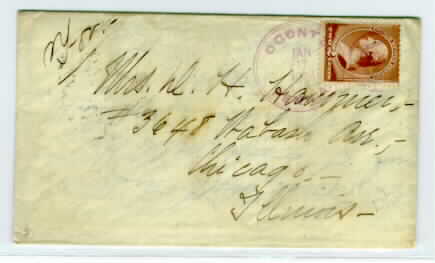 OCONT
JAN
Mrs. D. H.
#3648 Wabash Ave.,
Chicago,
Illinois